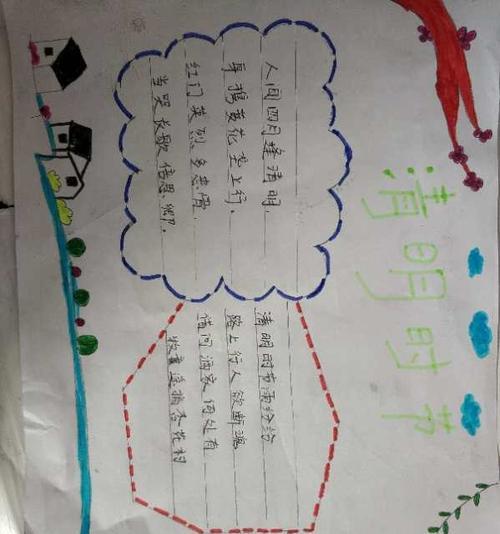 清明时节
人间四月逢清明,
黄花垄上行。
红门英烈多忠骨
当哭长歌倍思卿。
清明时节雨纷纷
路上行人欲断魂
借问酒家何处有
牧童遥指杏花村